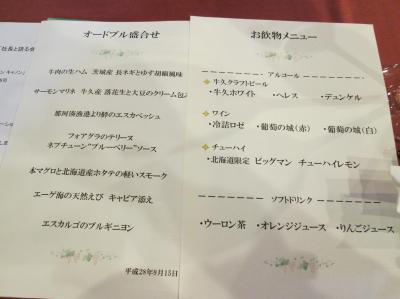 「社長と語る会
オードブル盛合せ
牛肉の生ハム 茨城産 長ネギとゆず胡椒風味
サーモンマリネ 牛久産 落花生と大豆のクリーム包み
那珂湊漁港より鯵のエスカベッシュ
フォアグラのテリーヌ
ネプチューン"ブルーベリー"ソース
本マグロと北海道産ホタテの軽いスモーク
エーゲ海の天然えび キャビア添え
エスカルゴのブルギニヨン
平成28年8月15日
お飲物メニュー
アルコール
牛久クラフトビール
・牛久ホワイト ・ヘレス ・デュンケル
ワイン
・冷詰ロゼ ・葡萄の城(赤) ・葡萄の城(白)
チューハイ
・北海道限定 ビッグマン チューハイレモン
ソフトドリンク
・ウーロン茶 ・オレンジジュース ・りんごジュース